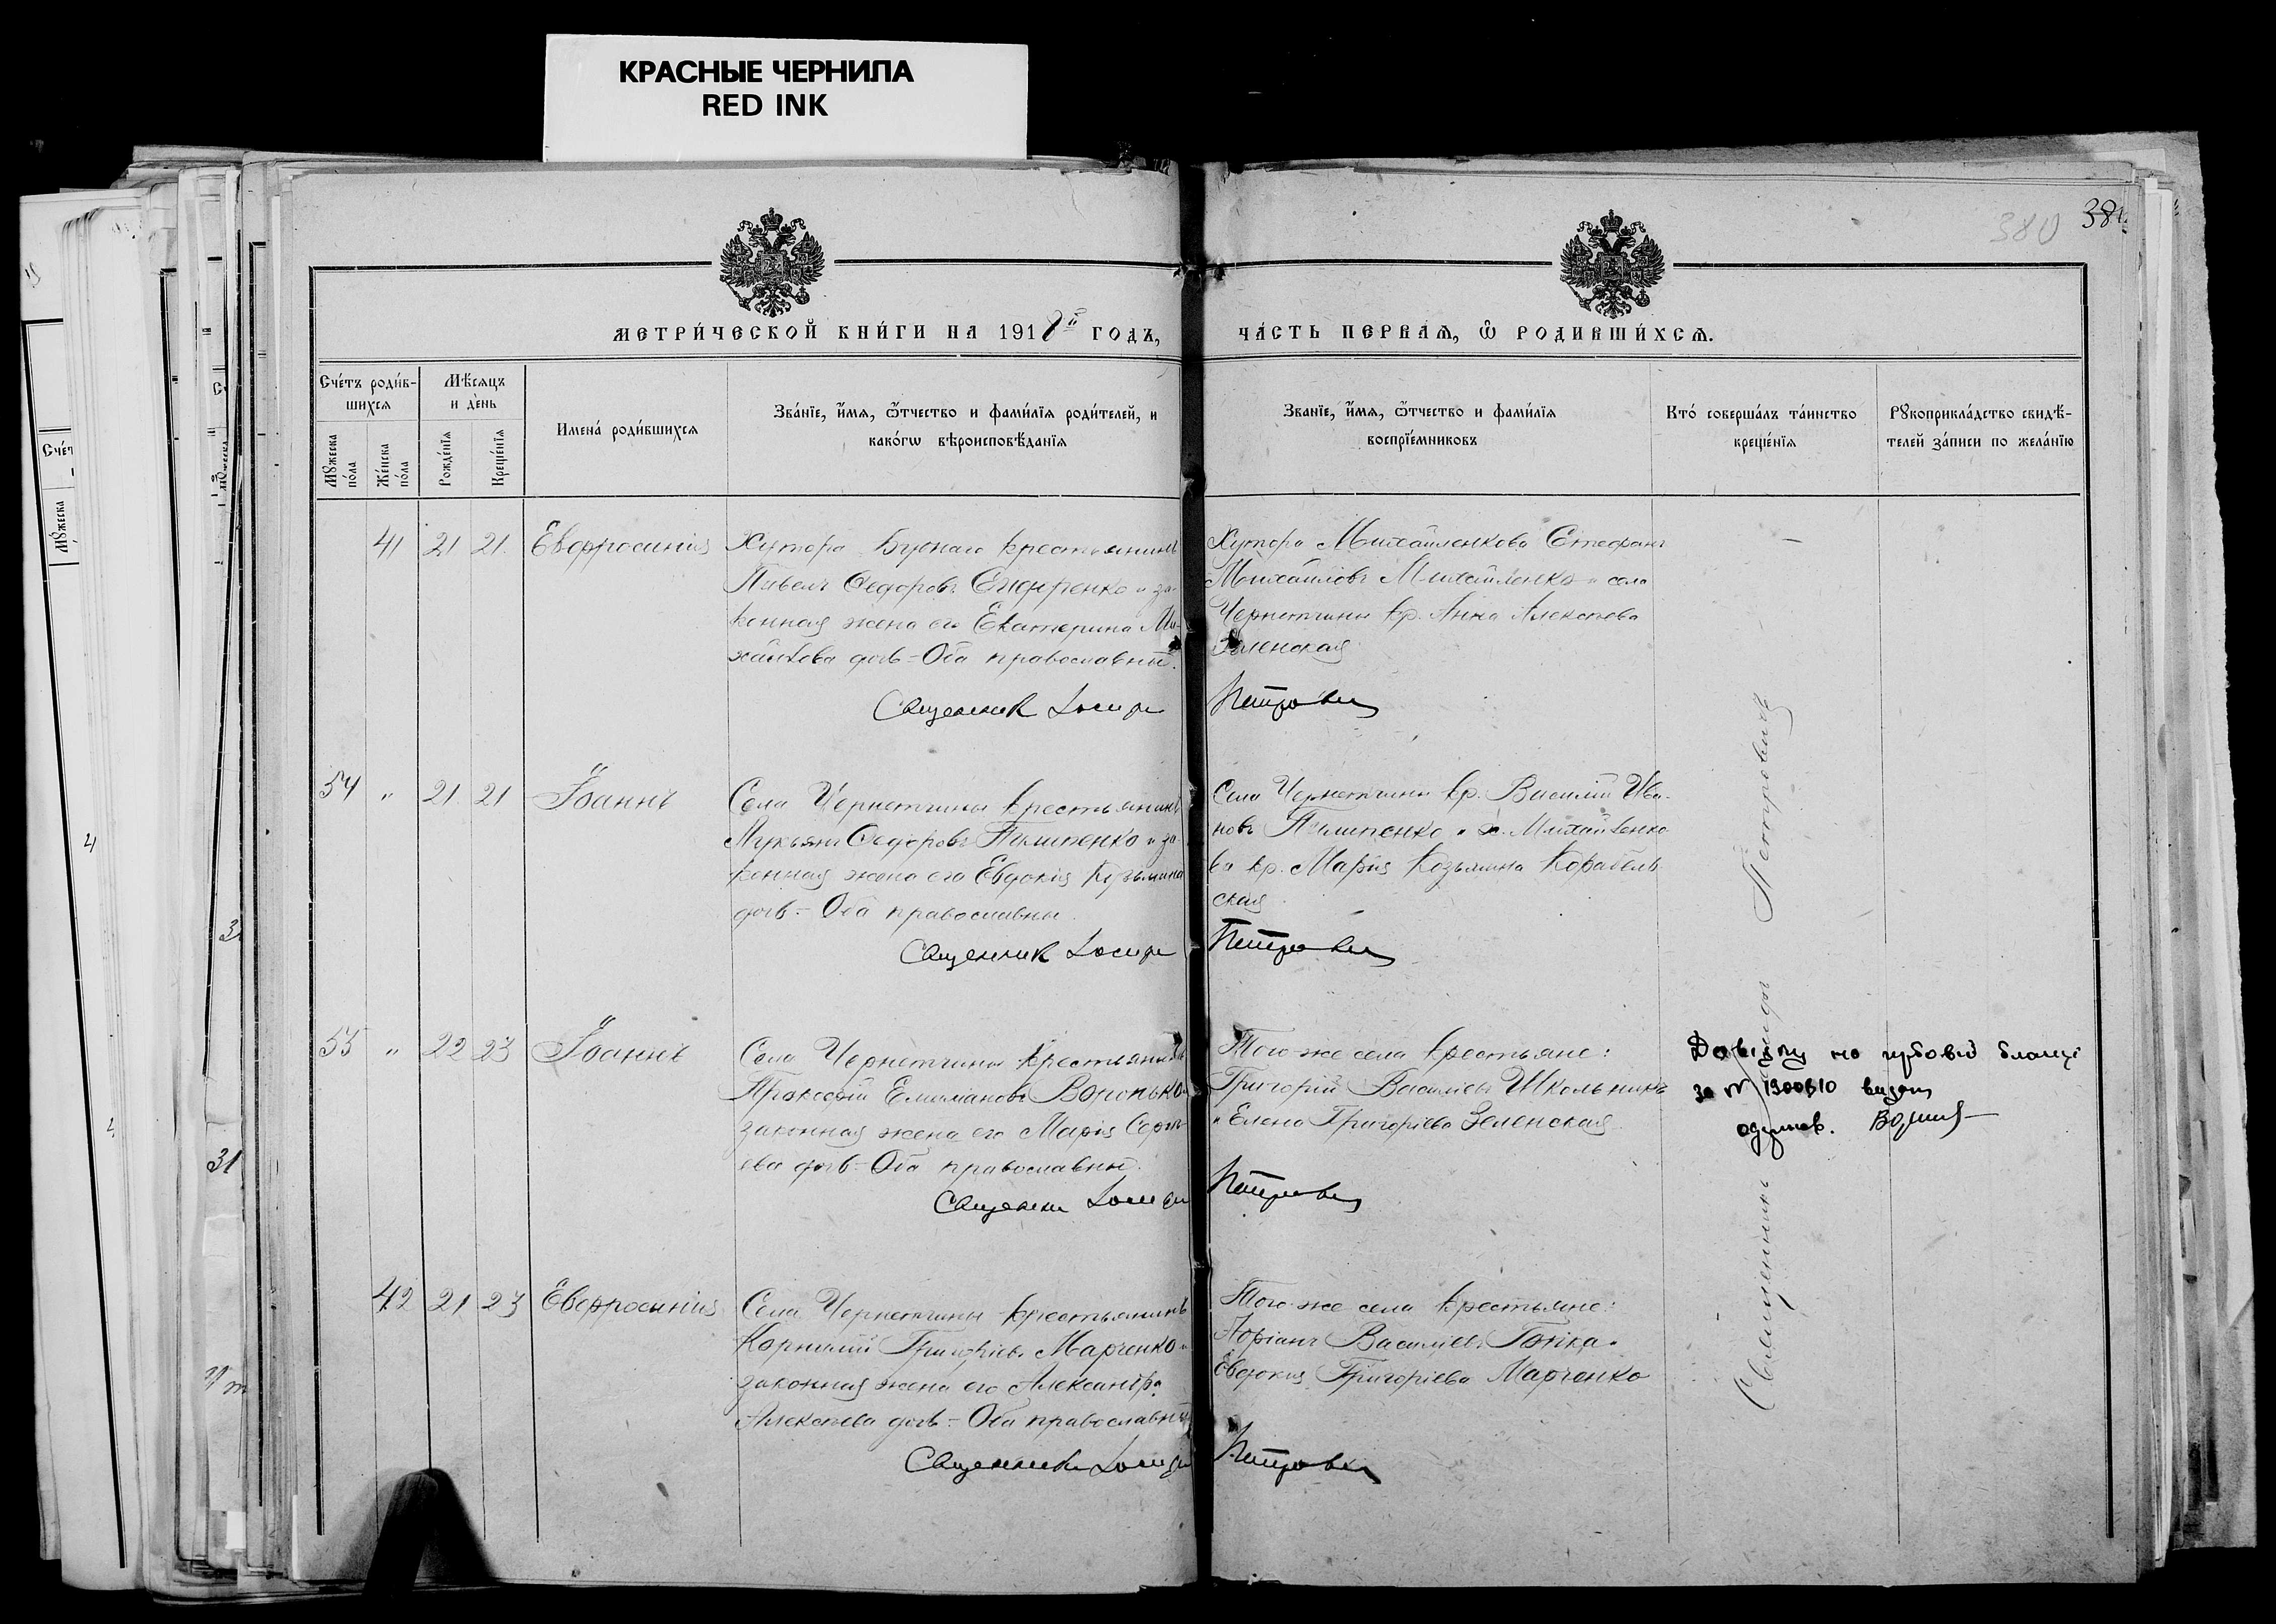 КРАСНЫЕ ЧЕРНИЛА
RED INK
380
381
МЕТРИ́ЧЕСКОЙ КНИ́ГИ НА 1918й ГОДЪ,
ЧА́СТЬ ПЕРВАѦ, Ѽ РОДИВШИ́ХСѦ.
Сче́тъ роди́в-
шихсѧ
Мѣ́сѧцъ
и де́нь
Мꙋжеска
по́ла
Же́нска
по́ла
Рожде́нїѧ
Креще́нїѧ
Имена́ роди́вшихсѧ
Зва́нїе, и́мѧ, ѻ́тчество и фами́лїѧ роди́телей, и
како́гѡ вѣроисповѣ́данїѧ
Званїе, и́мѧ, ѻ́тчество и фами́лїѧ
воспрїе́мниковъ
Кто́ соверша́лъ та́инство
креще́нїѧ
Рꙋкоприкла́дство свидѣ́-
телей за́писи по жела́нїю
41 21 21. Евфросинія
Хутора Буднаго крестьянинъ
Павелъ Ѳедоровъ и за-
конная жена его Екатерина Ми-
хайлова дочь - Оба православные.
Священник Іосиф
Хутора Михайленкова Стефанъ
Михайловъ Михайленко и села
Чернетчины кр. Анна Алексѣева
Зеленская
Петрович
54 " 21 21 Іоаннъ
Села Чернетчины крестьянинъ
Лукьянъ Ѳедоровъ Пилипенко и за-
конная жена его Евдокія Кузьмина
дочь - Оба православны.
Священник Іосиф
Села Чернетчины кр. Василій Ива-
новъ Пилипенко и х. Михайленко-
ва кр. Марія Козьмина Корабель-
ская
Петрович
55 " 22 23 Іоаннъ
Села Чернетчины крестьянинъ
Прокофій Емиліановъ Воронько и
законная жена его Марія Сергѣ-
ева дочь - Оба православные.
Священник Іосиф
Того же села крестьяне:
Григорій Васильевъ Школьникъ
и Елена Григоріева Зеленская
Петрович
Довідку на
за № видан
42 21 23 Евфросинія
Села Чернетчины крестьянинъ
Корнилій Григоріевъ Марченко и
законная жена его Александра
Алексѣева дочь - Оба православные
Священник Іосиф
Того же села крестьяне:
Адріанъ Васильевъ и
Евдокія Григоріева Марченко
Петрович
Священникъ Іосифъ Петровичъ